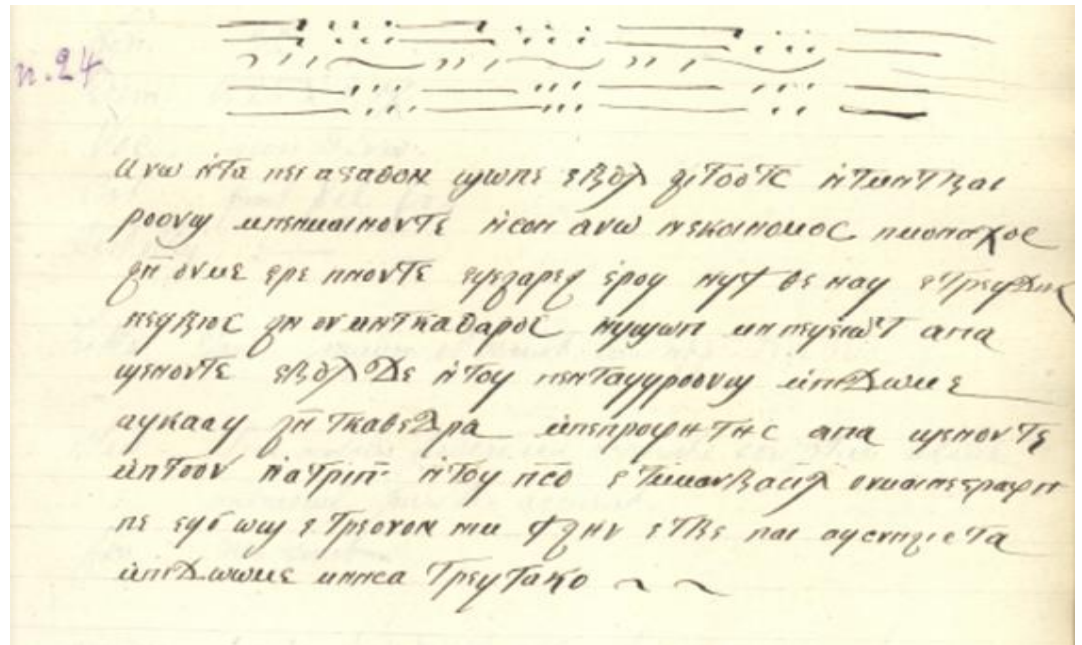 n. 24
ⲁⲩⲱ ⲛ̄ⲧⲁ ⲡⲉⲓ ⲁⲅⲁⲑⲟⲛ ϣⲱⲡⲉ ⲉⲃⲟⲗ ϩⲓⲧⲟⲟⲧⲥ ⲛ̄ⲧⲙⲛⲧϥⲁⲓ
ⲣⲟⲟⲩϣ ⲙⲡⲉⲛⲙⲁⲓⲛⲟⲩⲧⲉ ⲛ̄ⲥⲟⲛ ⲁⲩⲱ ⲛⲉⲕⲟⲓⲛⲟⲙⲟⲥ ⲡⲙⲟⲛⲁⲭⲟⲥ
ϩⲛ̄ ⲟⲩⲙⲉ ⲉⲣⲉ ⲡⲛⲟⲩⲧⲉ ⲉϥⲉϩⲁⲣⲉϩ ⲉⲣⲟϥ ⲛϥϯ ⲑⲉ ⲛⲁϥ ⲉⲧⲣⲉϥϫⲱⲕ
ⲡⲉϥⲃⲓⲟⲥ ϩⲛ ⲟⲩⲙⲛⲧⲕⲁⲑⲁⲣⲟⲥ ⲛϥϣⲱⲡ ⲙⲛ ⲡⲉϥⲉⲓⲱⲧ ⲁⲡⲁ
ϣⲉⲛⲟⲩⲧⲉ ⲉⲃⲟⲗ ϫⲉ ⲛ̄ⲧⲟϥ ⲡⲉⲛⲧⲁϥϥⲓⲣⲟⲟⲩϣ ⲙⲡⲉⲓϫⲱⲙⲉ
ⲁϥⲕⲁⲁϥ ϩⲛ̄ ⲧⲕⲁⲑⲉⲇⲣⲁ ⲙⲡⲉⲡⲣⲟⲫⲏⲧⲏⲥ ⲁⲡⲁ ϣⲉⲛⲟⲩⲧⲉ
ⲙ̄ⲡⲧⲟⲟⲩ ⲛ̄ⲁⲧⲣⲓⲡⲉ ⲛ̄ⲧⲟϥ ⲡⲥⲟ ⲟⲩⲙⲁⲓⲛⲉⲅⲣⲁⲫⲏ
ⲡⲉ ⲉϥϭⲱϣ ⲉⲧⲣⲉⲟⲩⲟⲛ ⲛⲓⲙ ϯϩⲏⲩ ⲉⲧⲃⲉ ⲡⲁⲓ ⲁϥⲥⲩⲛϩⲓⲥⲧⲁ
ⲙ̄ⲡⲓϫⲱⲱⲙⲉ ⲙⲛⲛⲥⲁ ⲧⲣⲉϥⲧⲁⲕⲟ